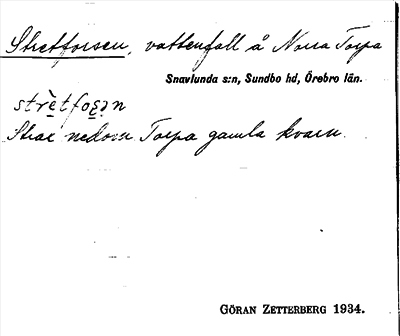 Stretforsen, vattenfall å Norra Torpa
Snavlunda s:n, Sundbo hd, Örebro län.
strètfo̲s̲ən
Strax nedom Torpa gamla kvarn.
GÖRAN ZETTERBERG 1934.